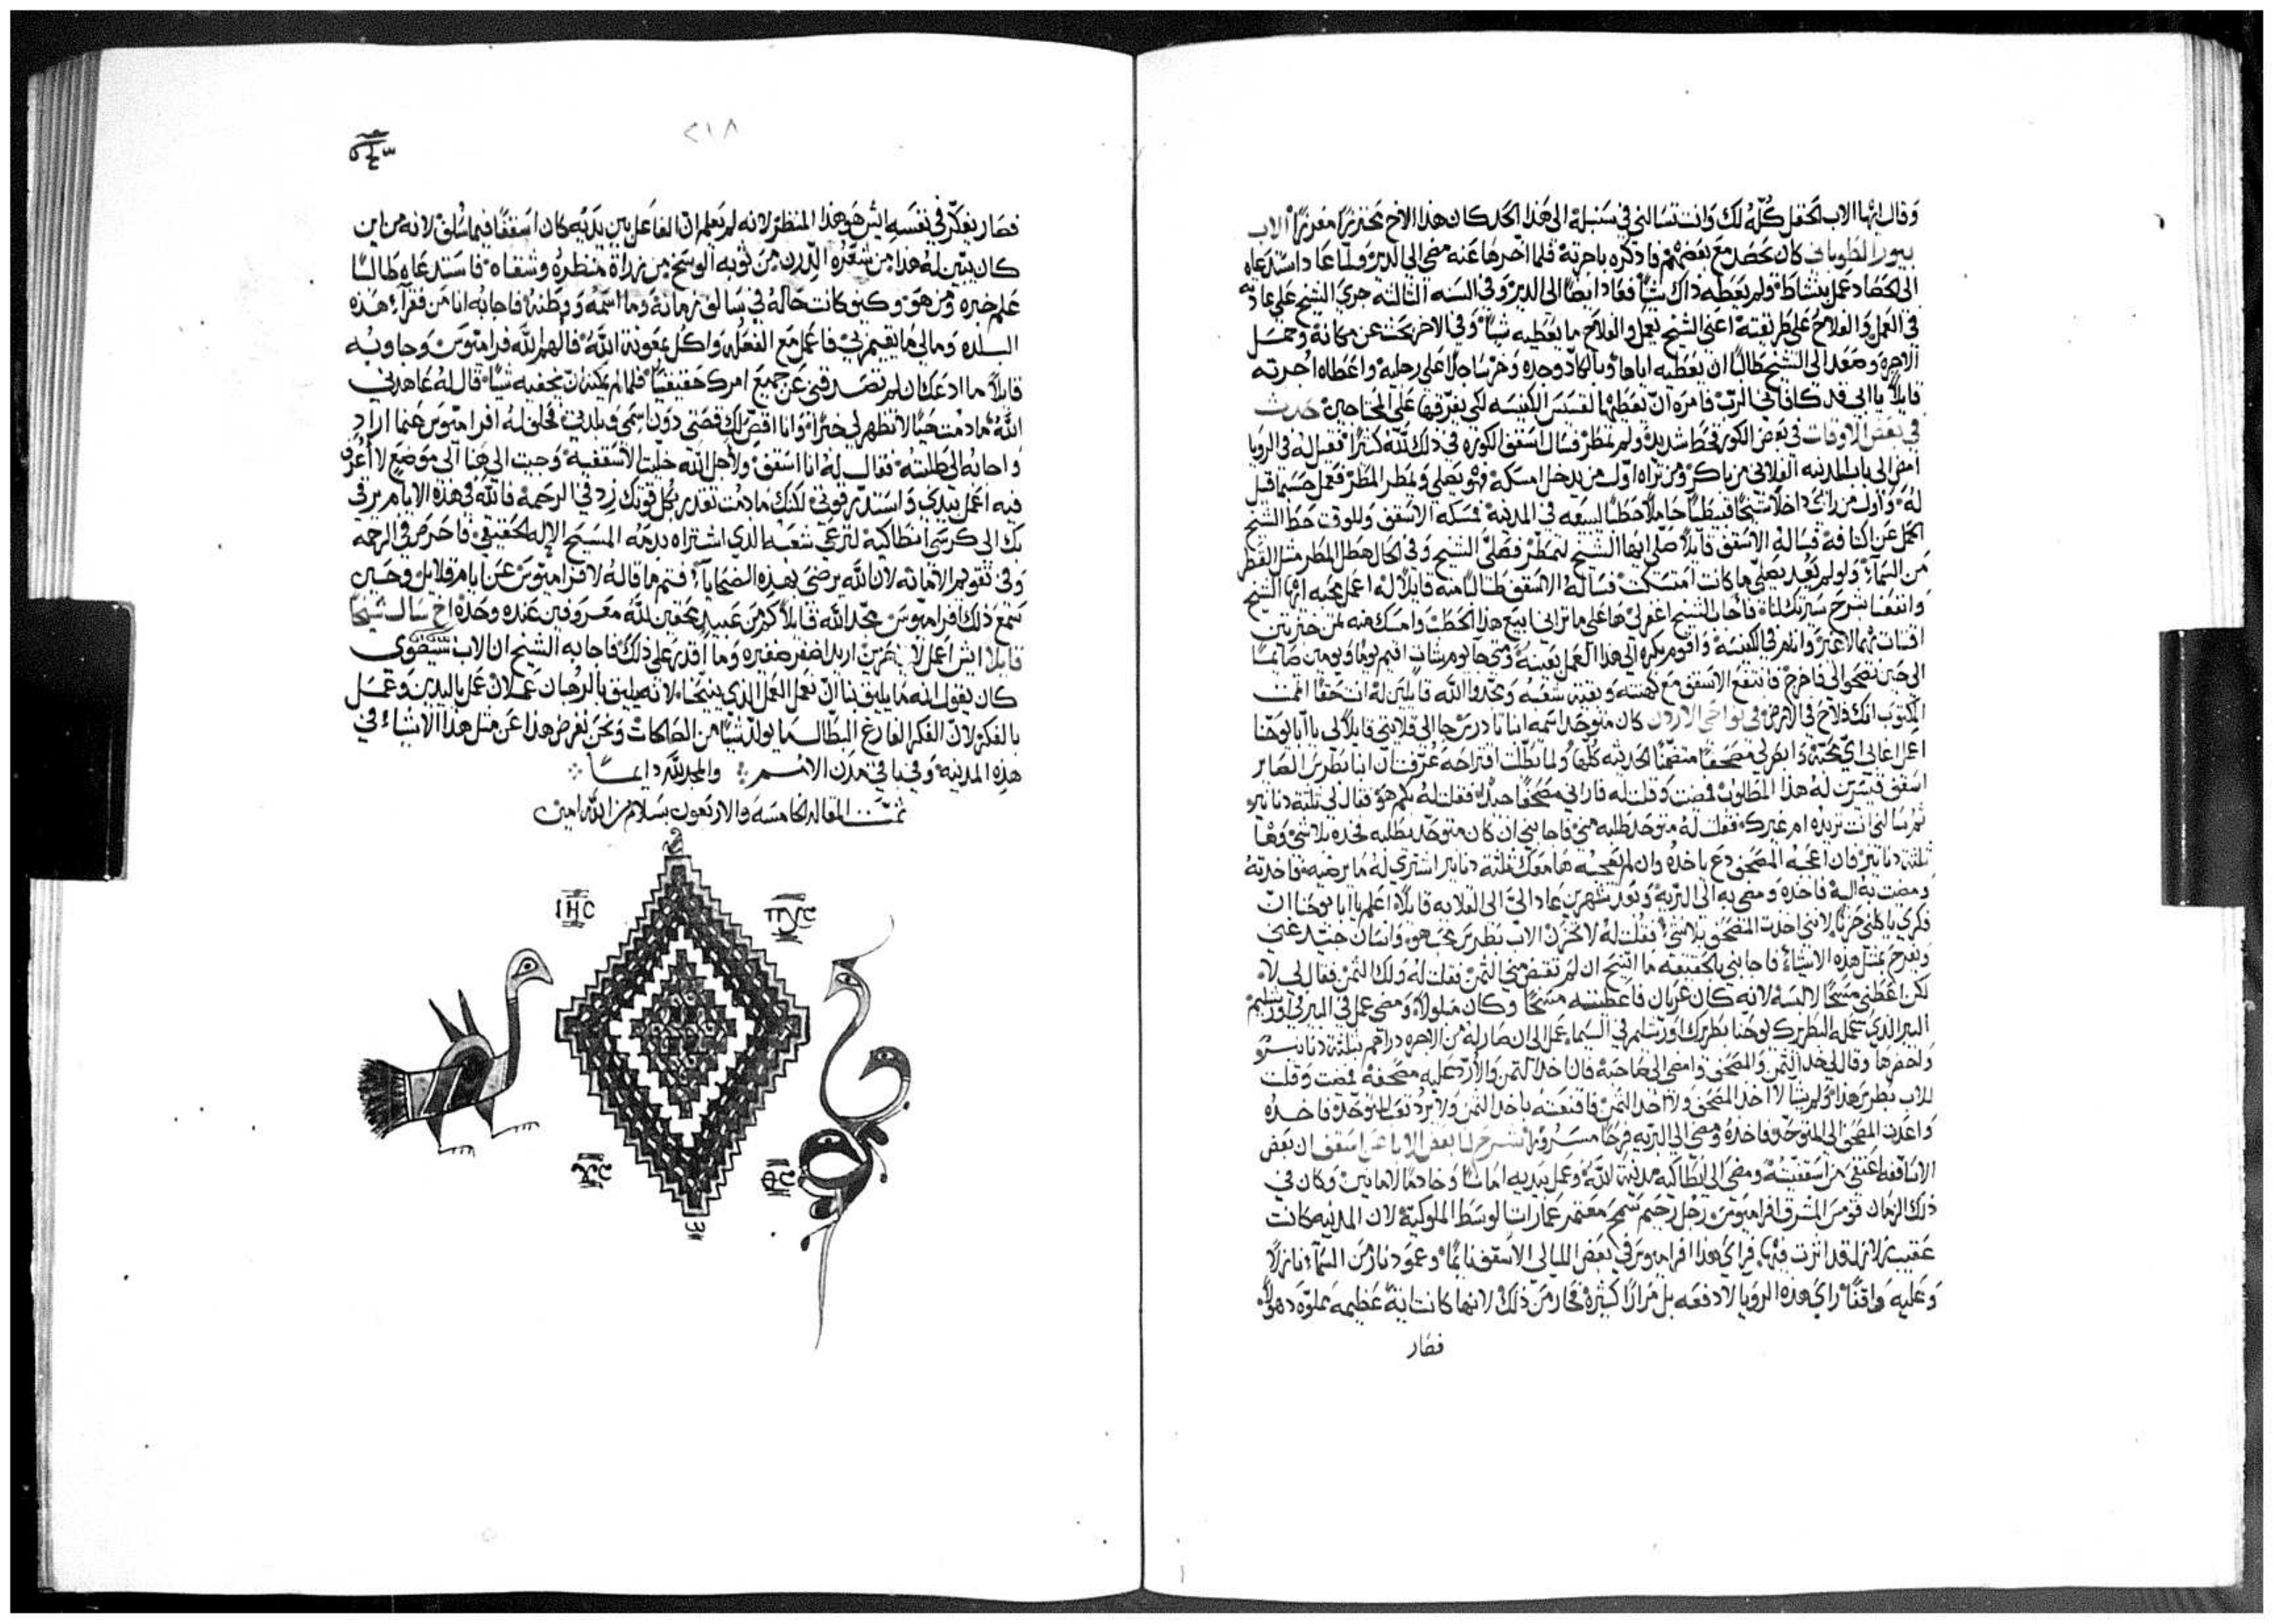 وقال ايها الاب الحقل كله لك وانت تسالني في سنبلة الى هذا الحد كان هذا الاخ محترزا الاب
كان يحصد مع بعضهم فاذكره باجرته فلما اخرها عنه مضى الى الدير ولما عاد استدعاه
الى الحصاد عمل بنشاط ولم يعطه ذاك شيا فعاد ايضا الى الدير وفى السنه الثالثه جرى الشيخ على عادته
فى العمل والفلاح على طريقته اعنى الشيخ يعمل والفلاح ما يعطيه شيا وفي الاخر بحث عن مكانه وحمل
الاجره وصعد الى الشيخ طالبا ان يعطيه اياها وبالكاد وجده وخر ساجدا على رجليه واعطاه اجرته
قايلا يا ابى قد كافانى الرب فامره ان يعطيها لقسيس الكنيسه لكى يفرقها على المحتاجين حدث
فى بعض الاوقات في بعض الكور قحط شديد ولم تمطر فسال اسقف الكوره في ذلك لله كثيرا فقيل له فى الرويا
امض الى باب المدينه الفلانى من باكر ومن تراه اول من يدخل امسكه فهو يصلي ويمطر المطر فعمل حسبما قيل
له واول من راى داخلا شيخا حاملا حطبا ليبيعه فى المدينه فمسكه الاسقف وللوقت حط الشيخ
الحمل عن اكتافه فساله الاسقف قايلا صلى ايها الشيخ لتمطر فصلى الشيخ وفى الحال هطل المطر مثل القطر
من السماء ولو لم يعد يصلي ما كانت امتسكت فساله الاسقف طالبا منه قايلا له اعمل محبه ايها الشيخ
وانفعنا بشرح سيرتك لنا فاجاب الشيخ اغفر لي ها على ما تراني ابيع هذا الحطب وامسك منه ثمن خبزتين
اقتات بهما لا غير وانام فى الكنيسه واقوم بكره الى هذا العمل بعينه ومتى جا يوم شات اقيم يوما ويومين صايما
الى حين تصحو الى فاخرج فانتفع الاسقف مع كهنته وبقية شعبه ومجدوا الله قايلين له انت حقا اتممت
المكتوب انك فلاح في الارض فى نواحي الاردن كان متوحد اسمه انبا تادرس جا الى قلايتى قايلا لى يا ابا يوحنا
اسقف فيسرت له هذا المطلوب فمضيت وقلت له فاراني مصحفا جيدا فقلت له بكم هو فقال لي ثلثة دنانير
ثم سالني انت تريده ام غيرك فقلت له متوحد طلبه مني فاجابني ان كان متوحد يطلبه فخذه بلا شي وها
ثلثة دنانير فان اعجبه المصحف دع ياخذه وان لم يعجبه ها معك ثلثة دنانير اشتري له ما يرضيه فاخذته
ومضيت به اليه فاخذه ومضى به الى البريه وبعد شهرين عاد الي الى القلايه قايلا اعلم يا ابا يوحنا ان
فكري ياكلني حزنا لانني اخذت المصحف بلا شي فقلت له لا تحزن الاب بطرس محب هو وانسان جيد غني
ويفرح بمثل هذه الاشياء فاجابني بالحقيقه ما استريح ان لم تقبض مني الثمن فقلت له ولك الثمن فقال لى لا
لكن اعطني مسحا لالبسه لانه كان عريان فاعطيته مسحا وكان ومضى عمل في البير في اورشليم
البير الذي عمله البطريرك يوحنا بطريرك اورشليم فى عمل الى ان صار له من الاجره دراهم بثلثة دنانير
واحضرها وقال لي خذ الثمن والمصحف وامض الى صاحبه فان اخذ الثمن والا رد عليه مصحفه فمضيت وقلت
للاب بطرس هذا ولم يشا لا اخذ المصحف ولا اخذ الثمن فاقنعته ياخذ الثمن ولا يرد تعب المتوحد فاخذه
واعدت المصحف الى المتوحد فاخذه ومضى الى البريه فرحا مسرورا شرح لنا بعض الابا عن اسقف ان بعض
الاساقفه اعتفى من اسقفيته ومضى الى انطاكيه مدينة الله وعمل بيديه وكان في
ذلك الزمان قومس المشرق افراميوس رجل رحيم سمح لان المدينه كانت
عقيب زلزله قد اثرت فيها فراى هذا افراميوس في بعض الليالى الاسقف نايما وعمود نار من السماء نازلا
وعليه واقفا راى هذه الرويا لا دفعه بل مرارا كثيره فحار من ذلك لانها كانت اية عظيمه مملوه ذهولا
فصار
٢١٨
فصار يفكر في نفسه ايش هو هذا المنظر لانه لم يعلم ان الفاعل بين يديه كان اسقفا فيما سلف لانه من اين
كان يتبين له هذا من شعره الدرن من ثوبه الوسخ من زراة منظره وشقاه فاستدعاه طالبا
علم خبره ومن هو وكيف كانت حاله في سالف زمانه وما اسمه ووطنه فاجابه انا من فقراء هذه
البلده ومالى ما يقيم بي فاعمل مع الفعله واكل بمعونة الله فالهم الله افراميوس وجاوبه
قايلا ما ادعك ان لم تصدقني عن جميع امرك حقيقيا فلما لم يمكنه ان يخفيه شيا قال له عاهدني
الله مادمت حيا لا تظهر لي خبرا وانا اقص لك قصتي دون اسمي وبلدتى فحلف له افراميوس عندما اراد
واجابه الى طلبته فقال له انا اسقف ولاجل الله خليت الاسقفيه وجيت الي هنا الي موضع لا اعرف
فيه اعمل بيدي واستدر قوتي لكنك مادمت تقدر بكل قوتك زد في الرحمة فالله فى هذه الايام يرقى
بك الى كرسي انطاكية لترعى شعبه الذي اشتراه بدمه المسيح الاله الحقيقي فاحرص في الرحمه
وفي تقويم الامانه لان الله يرضى بهذه الضحايا فتم ما قاله لافراميوس عن ايام قلايل وحين
سمع ذلك افراميوس مجد الله قايلا كم من عبيد مخفيين لله معروفين عنده وحده اخ سال شيخا
قايلا ايش اعمل لا اريد اضفر ضفيره وما اقدر على ذلك فاجابه الشيخ ان الاب سيصوى
كان يقول انه ما يليق بنا ان نعمل العمل الذي لانه يليق بالرهبان عملان عمل باليدين وعمل
بالفكر لان الفكر الفارغ البطال ما يولد شيا من الصالحات ونحن نعرض هذا عن مثل هذا الاشياء في
هذه المدينه وفي باقي مدن الامم ⁘ والمجد لله دايما ⁘
تمت المقاله الخامسه والاربعون بسلام من الله امين
ΙΗC
ΠΥC
ΧC
ΘC
ω